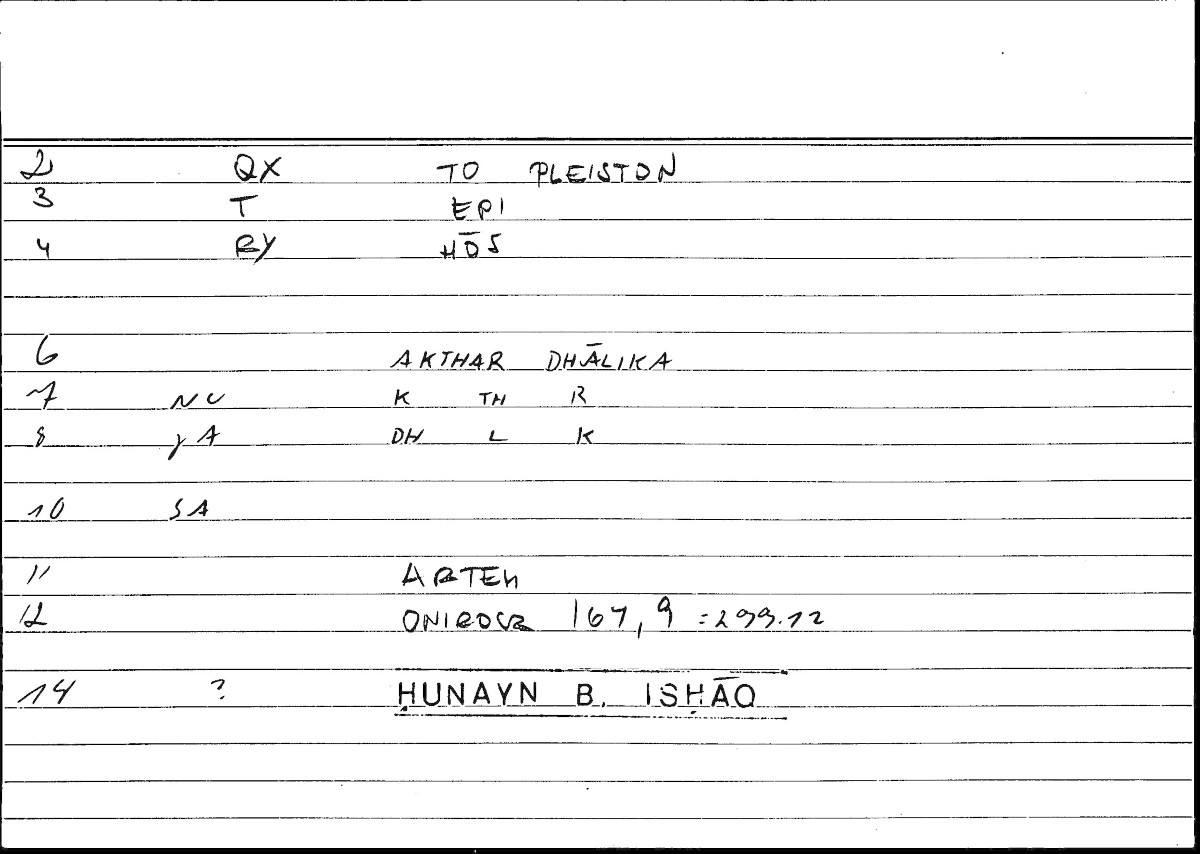 2 QX TO PLEISTON
3 T EPI
4 RY HŌS
6 AKTHAR DHĀLIKA
7 NU K TH R
8 JA DH L K
10 SA
11 ARTEM
12 ONIROCR 167,9 =299.12
14 ? ḤUNAYN B. ISḤĀQ